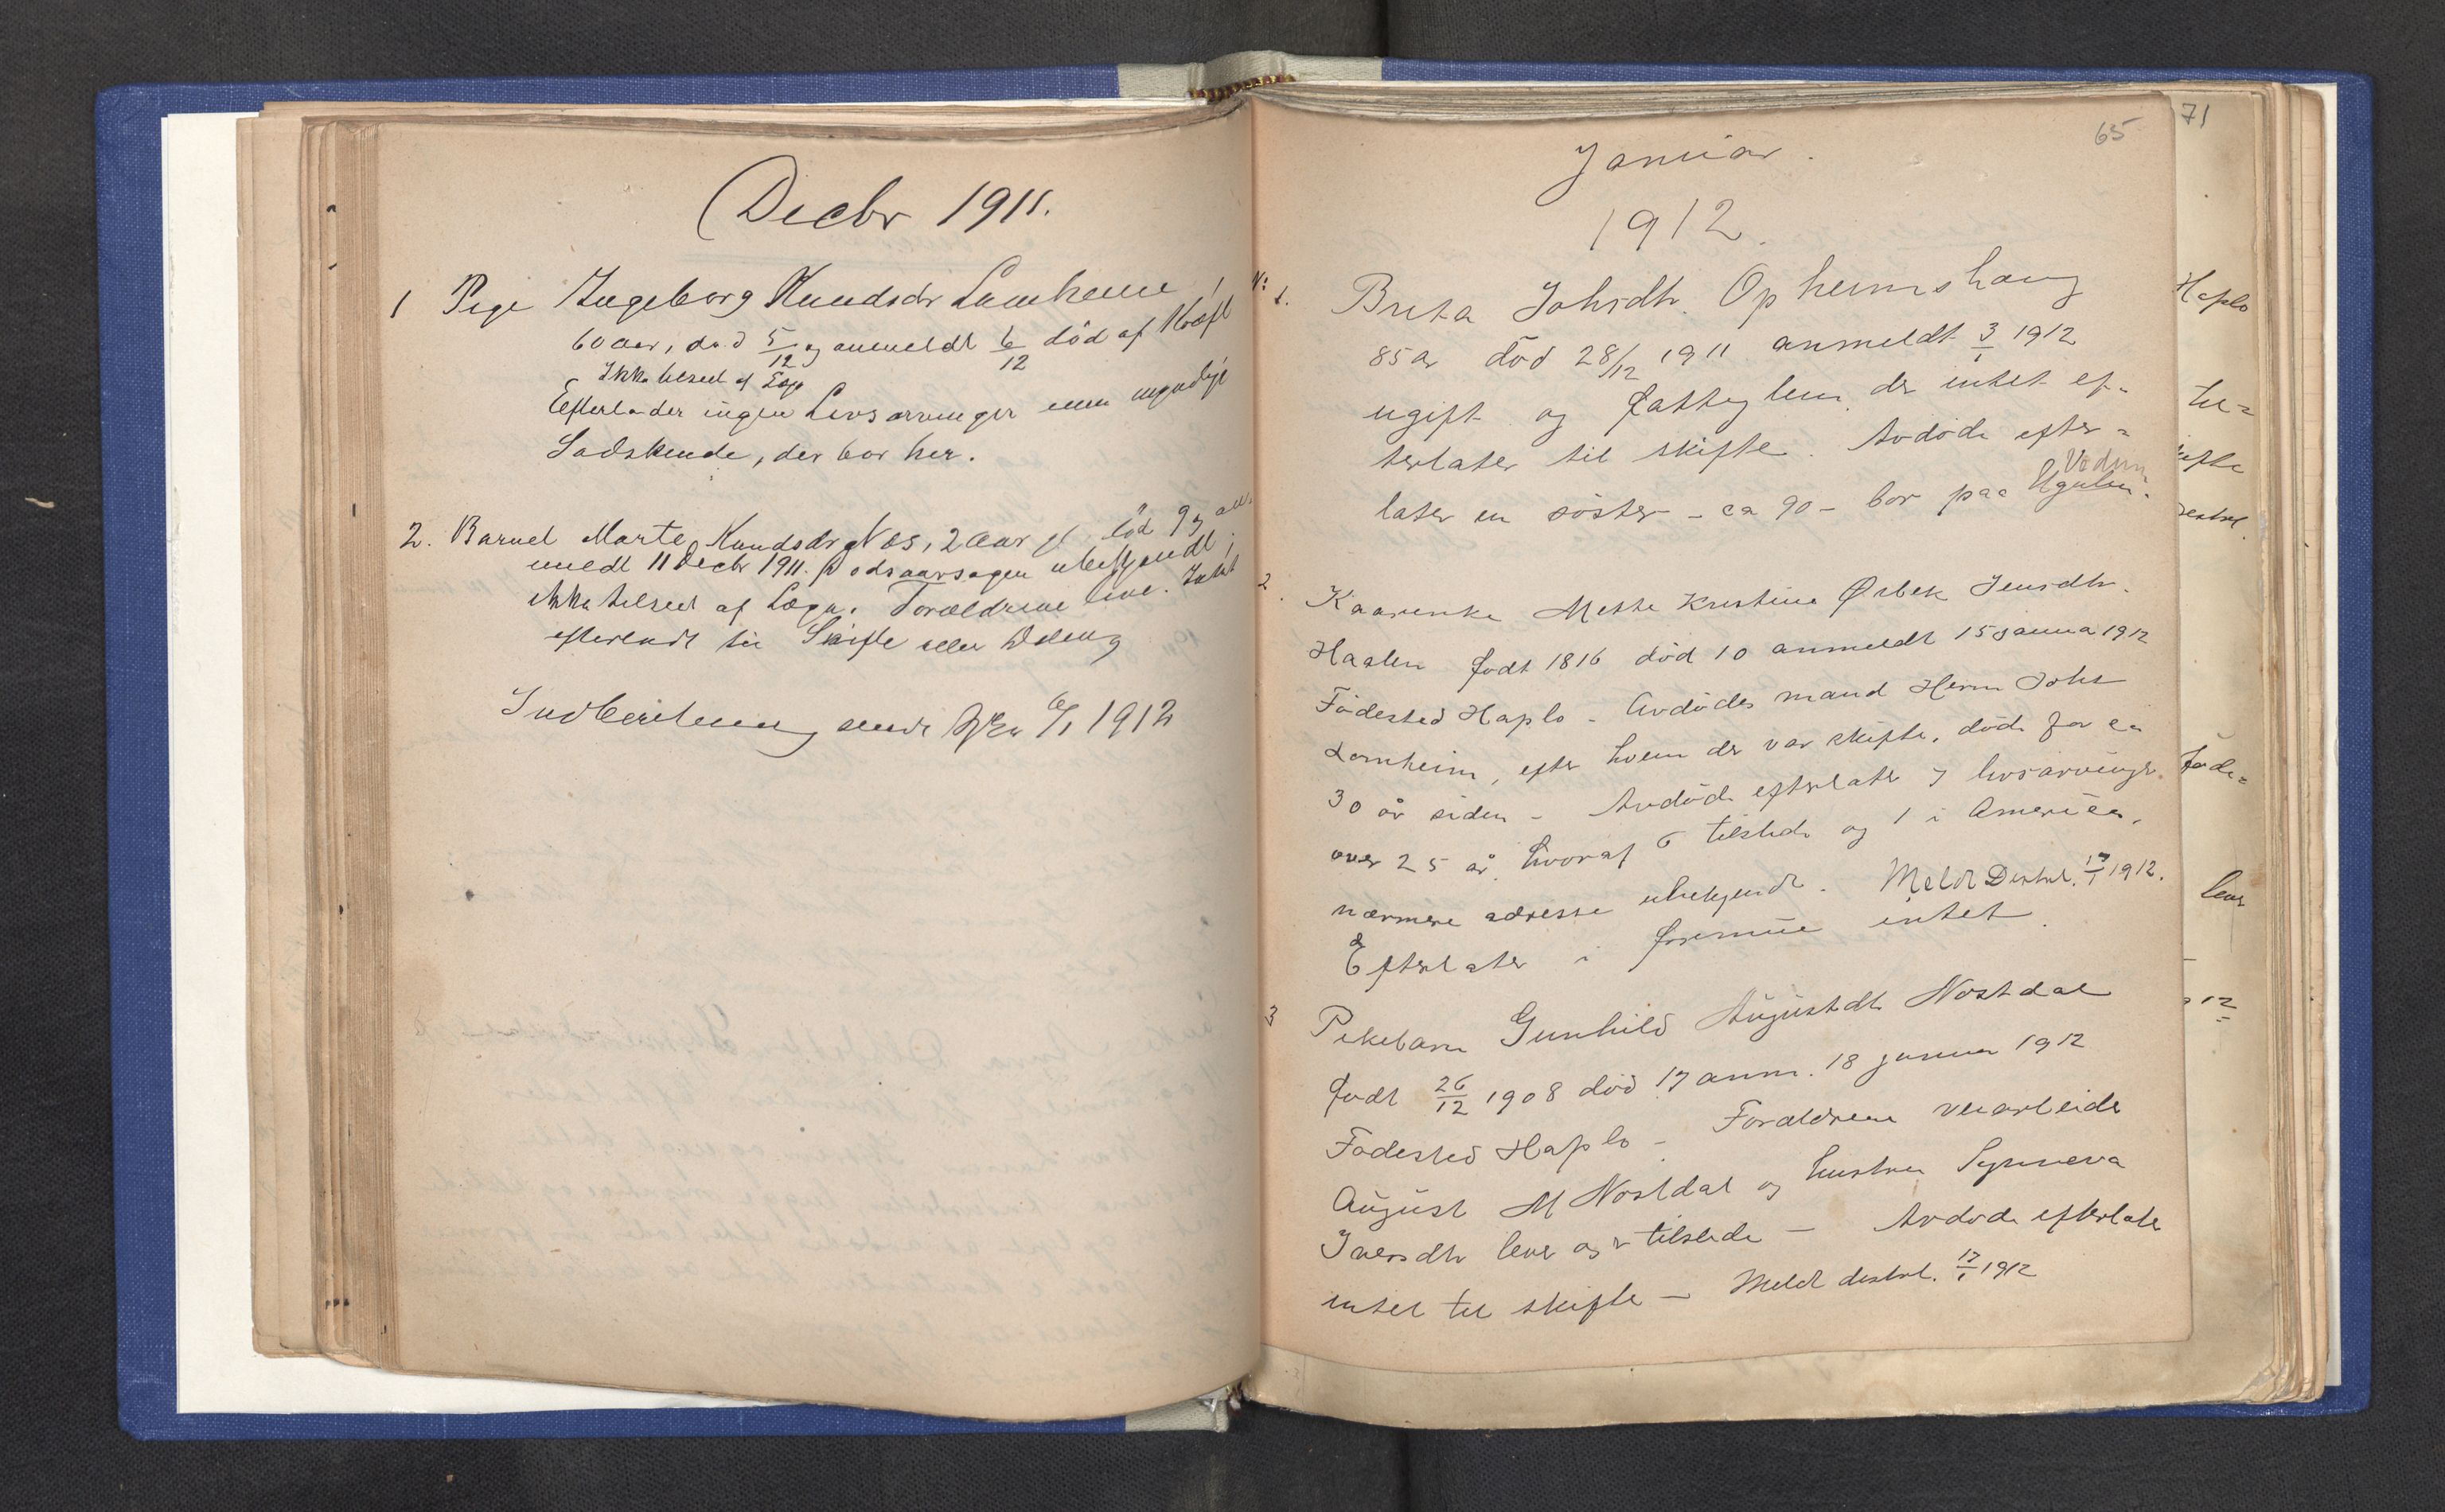 Decbr 1911.
1 Pige Ingeborg Knudsdr Lomheim,
60 aar, død 5/12 og anmeldt 6/12 død af Kræft
Ikke tilseet af Læge
Efterlader ingen Livsarvinger men myndige
Sødskende, der bor her.
2. Barnet Marte Knudsdr Nes, 2 aar gl død 9 og an-
meldt 11 Decbr 1911. Dødsaarsagen ubekjendt,
ikke tilseet af Læge. Forældrene leve. Intet
efterladt til Skifte eller Deling
Indberetning sendt 6/1 1912
65
71
Januar.
1912.
No 1. Brita Johsdtr. Opheimshaug
85 a død 28/12 1911 anmeldt 3/1 1912
ugift og fattiglem der intet ef-
terlater til skifte. Avdøde efter-
later en søster - ca 90 - bor paa
2. Kaarenke Mette Kristine Ørbek Jensdtr.
Haalen født 1816 død 10 anmeldt 15 janua 1912
Fødested Haplo - Avdødes mand Herm Johs
Lomheim, efter hvem der var skifte, døde for ca
30 år siden - Avdøde efterlater 7 livsarvinger
over 25 år, hvoraf 6 tilstede og 1 i America,
nærmere adresse ubekjendt. Meldt Distrl. 17/1 1912.
Efterlater i formue intet.
3 Pikebarn Gunhild Augustdtr Nostdal
født 26/12 1908 død 17 anm. 18 januar 1912
Fødested Haplo - Forældrene veiarbeider
August M Nostdal og hustru Synneva
Iversdtr lever og er tilstede - Avdøde efterlater
intet til skifte - Meldt distrl. 17/1 1912
Haplo
til=
kifte
Føde=
lever
12